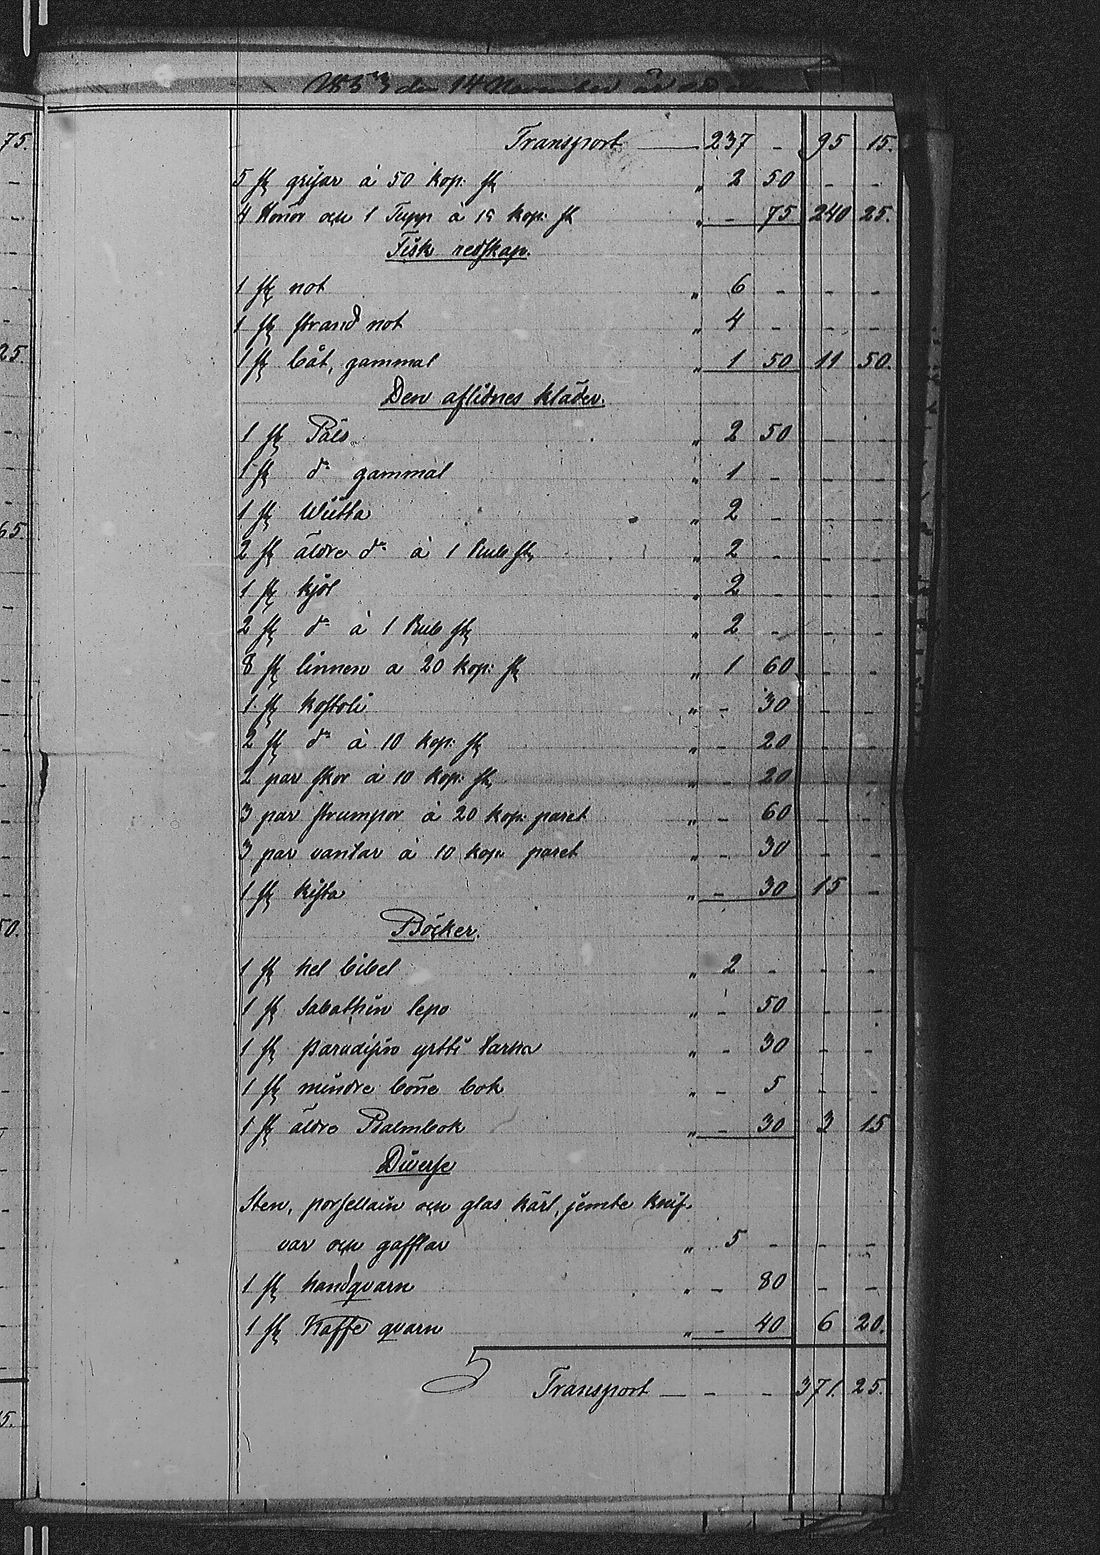 den 14 November
Transport — „ 237 - 95 15.
5 st grisar à 50 kop: st „ 2 50 - -
4 Hönor och 1 Tupp à 15 kop: st „ - 75 240 25.
Fisk redskap.
1 st not „ 6 - - -
1 st strand not „ 4 - - -
1 st båt, gammal „ 1 50 11 50.
Den aflidnes kläder.
1 st Päls „ 2 50 - -
1 st d:o gammal „ 1 - - -
1 st „ 2 - - -
2 st äldre d:o à 1 Rub st „ 2 - - -
1 st kjol „ 2 - - -
2 st d:o à 1 Rub st „ 2 - - -
8 st linnen a 20 kop: st „ 1 60 - -
1 st „ - 30 - -
2 st d:o à 10 kop: st „ - 20 - -
2 par skor à 10 kop: st „ - 20 - -
3 par strumpor à 20 kop: paret „ - 60 - -
3 par vantar à 10 kop: paret „ - 30 - -
1 st kista „ - 30 15 -
Böcker.
1 st hel bibel „ 2 - - -
1 st sabathin lepo „ - 50 - -
1 st paradisin yrtti tarha „ - 30 - -
1 st mindre böne bok „ - 5 - -
1 st äldre Psalmbok „ - 30 3 15
Diverse
Sten, porsellain och glas kärl, jemte knif-
var och gafflar „ 5 - - -
1 st handqvarn „ - 80 - -
1 st Kaffe qvarn „ - 40 6 20.
Transport — - - 371. 25.
75.
25.
65
50.
5.